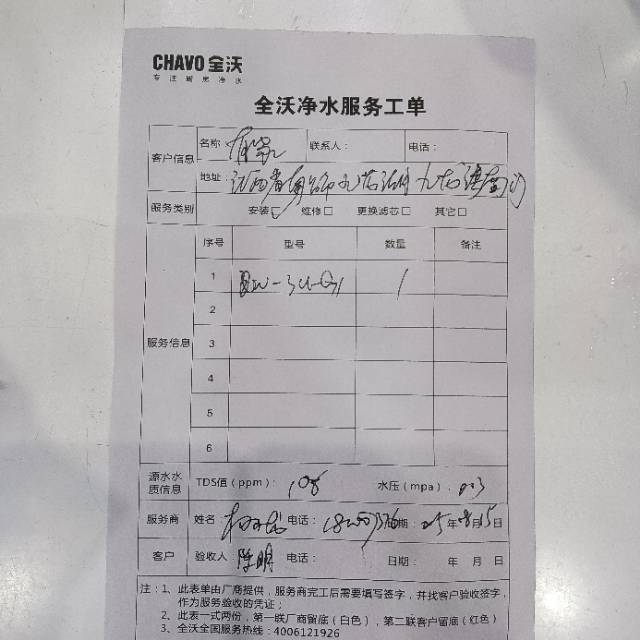 CHAVO 全沃
专注智惠净水
全沃净水服务工单
客户信息 名称: 联系人: 电话:
地址:
服务类别 安装□ 维修□ 更换滤芯□ 其它□
服务信息 序号 型号 数量 备注
1 1
2
3
4
5
6
源水水质信息 TDS值(ppm): 108 水压(mpa):
服务商 姓名: 电话: 日期: 年 8月15日
客户 验收人 陈明 电话: 日期: 年 月 日
注:1、此表单由厂商提供,服务商完工后需要填写签字,并找客户验收签字,
作为服务验收的凭证;
2、此表一式两份,第一联厂商留底(白色),第二联客户留底(红色)
3、全沃全国服务热线:4006121926